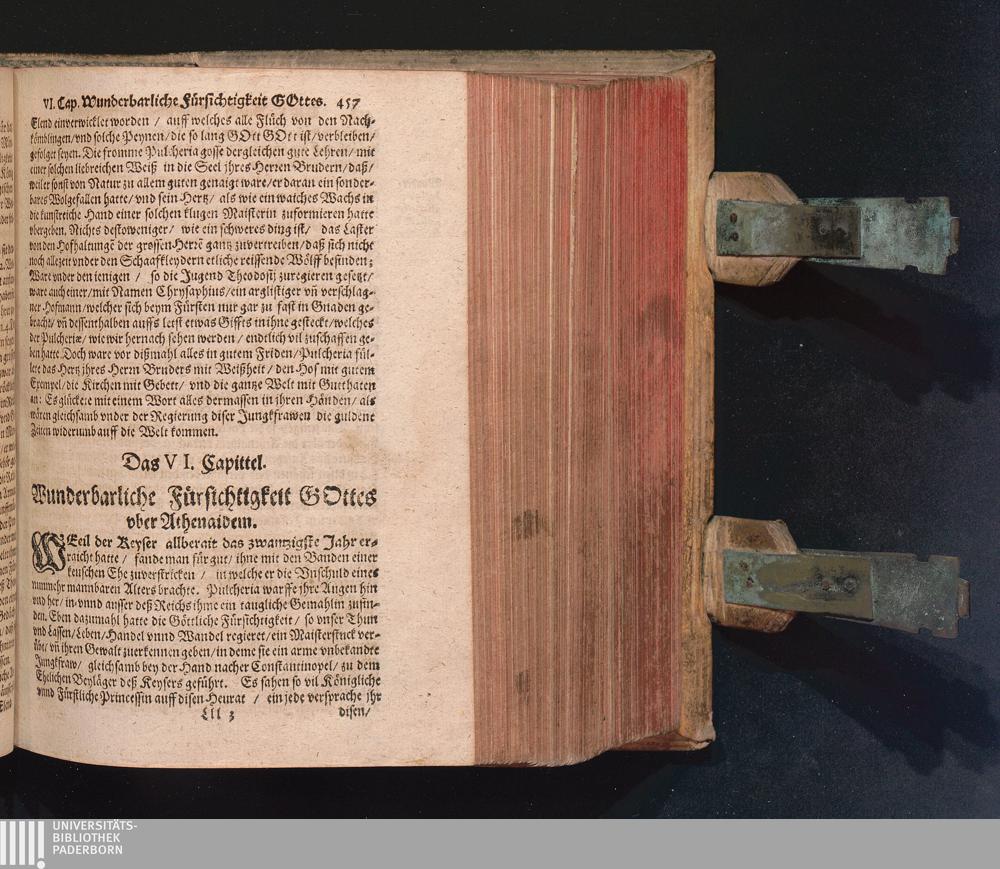 VI. Cap. Wunderbarliche Fürsichtigkeit GOttes. 457
Elend einverwicklet worden / auff welches alle Flüch von den Nach-
kömblingen/vnd solche Peynen/die so lang GOtt GOtt ist/verbleiben/
gefolget seyen. Die fromme Pulcheria gosse dergleichen gute Lehren/mit
einer solchen liebreichen Weiß in die Seel jhres Herren Brudern/daß/
weil er sonst von Natur zu allem guten genaigt ware/er daran ein sonder-
bares Wolgefallen hatte/vnd sein Hertz/ als wie ein waiches Wachs in
die kunstreiche Hand einer solchen klugen Maisterin zuformieren hatte
vbergeben. Nichts destoweniger/ wie ein schweres ding ist/ das Laster
von den Hofhaltungē der grossen Herrē gantz zuvertreiben/daß sich nicht
noch allezeit vnder den Schaafkleydern etliche reissende Wölff befinden;
Ware vnder den jenigen / so die Jugend Theodosij zuregieren gesetzt/
ware auch einer/mit Namen Chrysaphius/ein arglistiger vñ verschlag-
ner Hofmann/welcher sich beym Fürsten nur gar zu fast in Gnaden ge-
bracht/ vñ dessenthalben auffs letst etwas Giffts in ihne gesteckt/welches
der Pulcheriæ/ wie wir hernach sehen werden / endtlich vil zuschaffen ge-
ben hatte. Doch ware vor dißmahl alles in gutem Friden/Pulcheria fül-
lete das Hertz jhres Herrn Bruders mit Weißheit / den Hof mit gutem
Exempel/die Kirchen mit Gebett/ vnd die gantze Welt mit Gutthaten
an: Es glückete mit einem Wort alles dermassen in jhren Händen/ als
wären gleichsamb vnder der Regierung diser Jungkfrawen die guldene
Zeiten widerumb auff die Welt kommen.
Das VI. Capittel.
Wunderbarliche Fürsichtigkeit GOttes
vber Athenaidem.
WEeil der Keyser allberait das zwantzigste Jahr er-
raicht hatte / fande man für gut/ ihme mit den Banden einer
keuschen Ehe zuverstricken / in welche er die Vnschuld eines
nunmehr mannbaren Alters brachte. Pulcheria warffe ihre Augen hin
vnd her/ in vnnd ausser deß Reichs ihme ein taugliche Gemahlin zufin-
den. Eben dazumahl hatte die Göttliche Fürsichtigkeit/ so vnser Thun
vnd Lassen/Leben/Handel vnnd Wandel regieret/ein Maisterstuck ver-
übt/ vñ ihren Gewalt zuerkennen geben/in deme sie ein arme vnbekandte
Jungkfraw/ gleichsamb bey der Hand nacher Constantinopel/ zu dem
Ehelichen Beyläger deß Keysers geführt. Es sahen so vil Königliche
vnnd Fürstliche Princessin auff disen Heurat / ein jede versprache jhr
Lll 3 disen/
UNIVERSITÄTS-
BIBLIOTHEK
PADERBORN